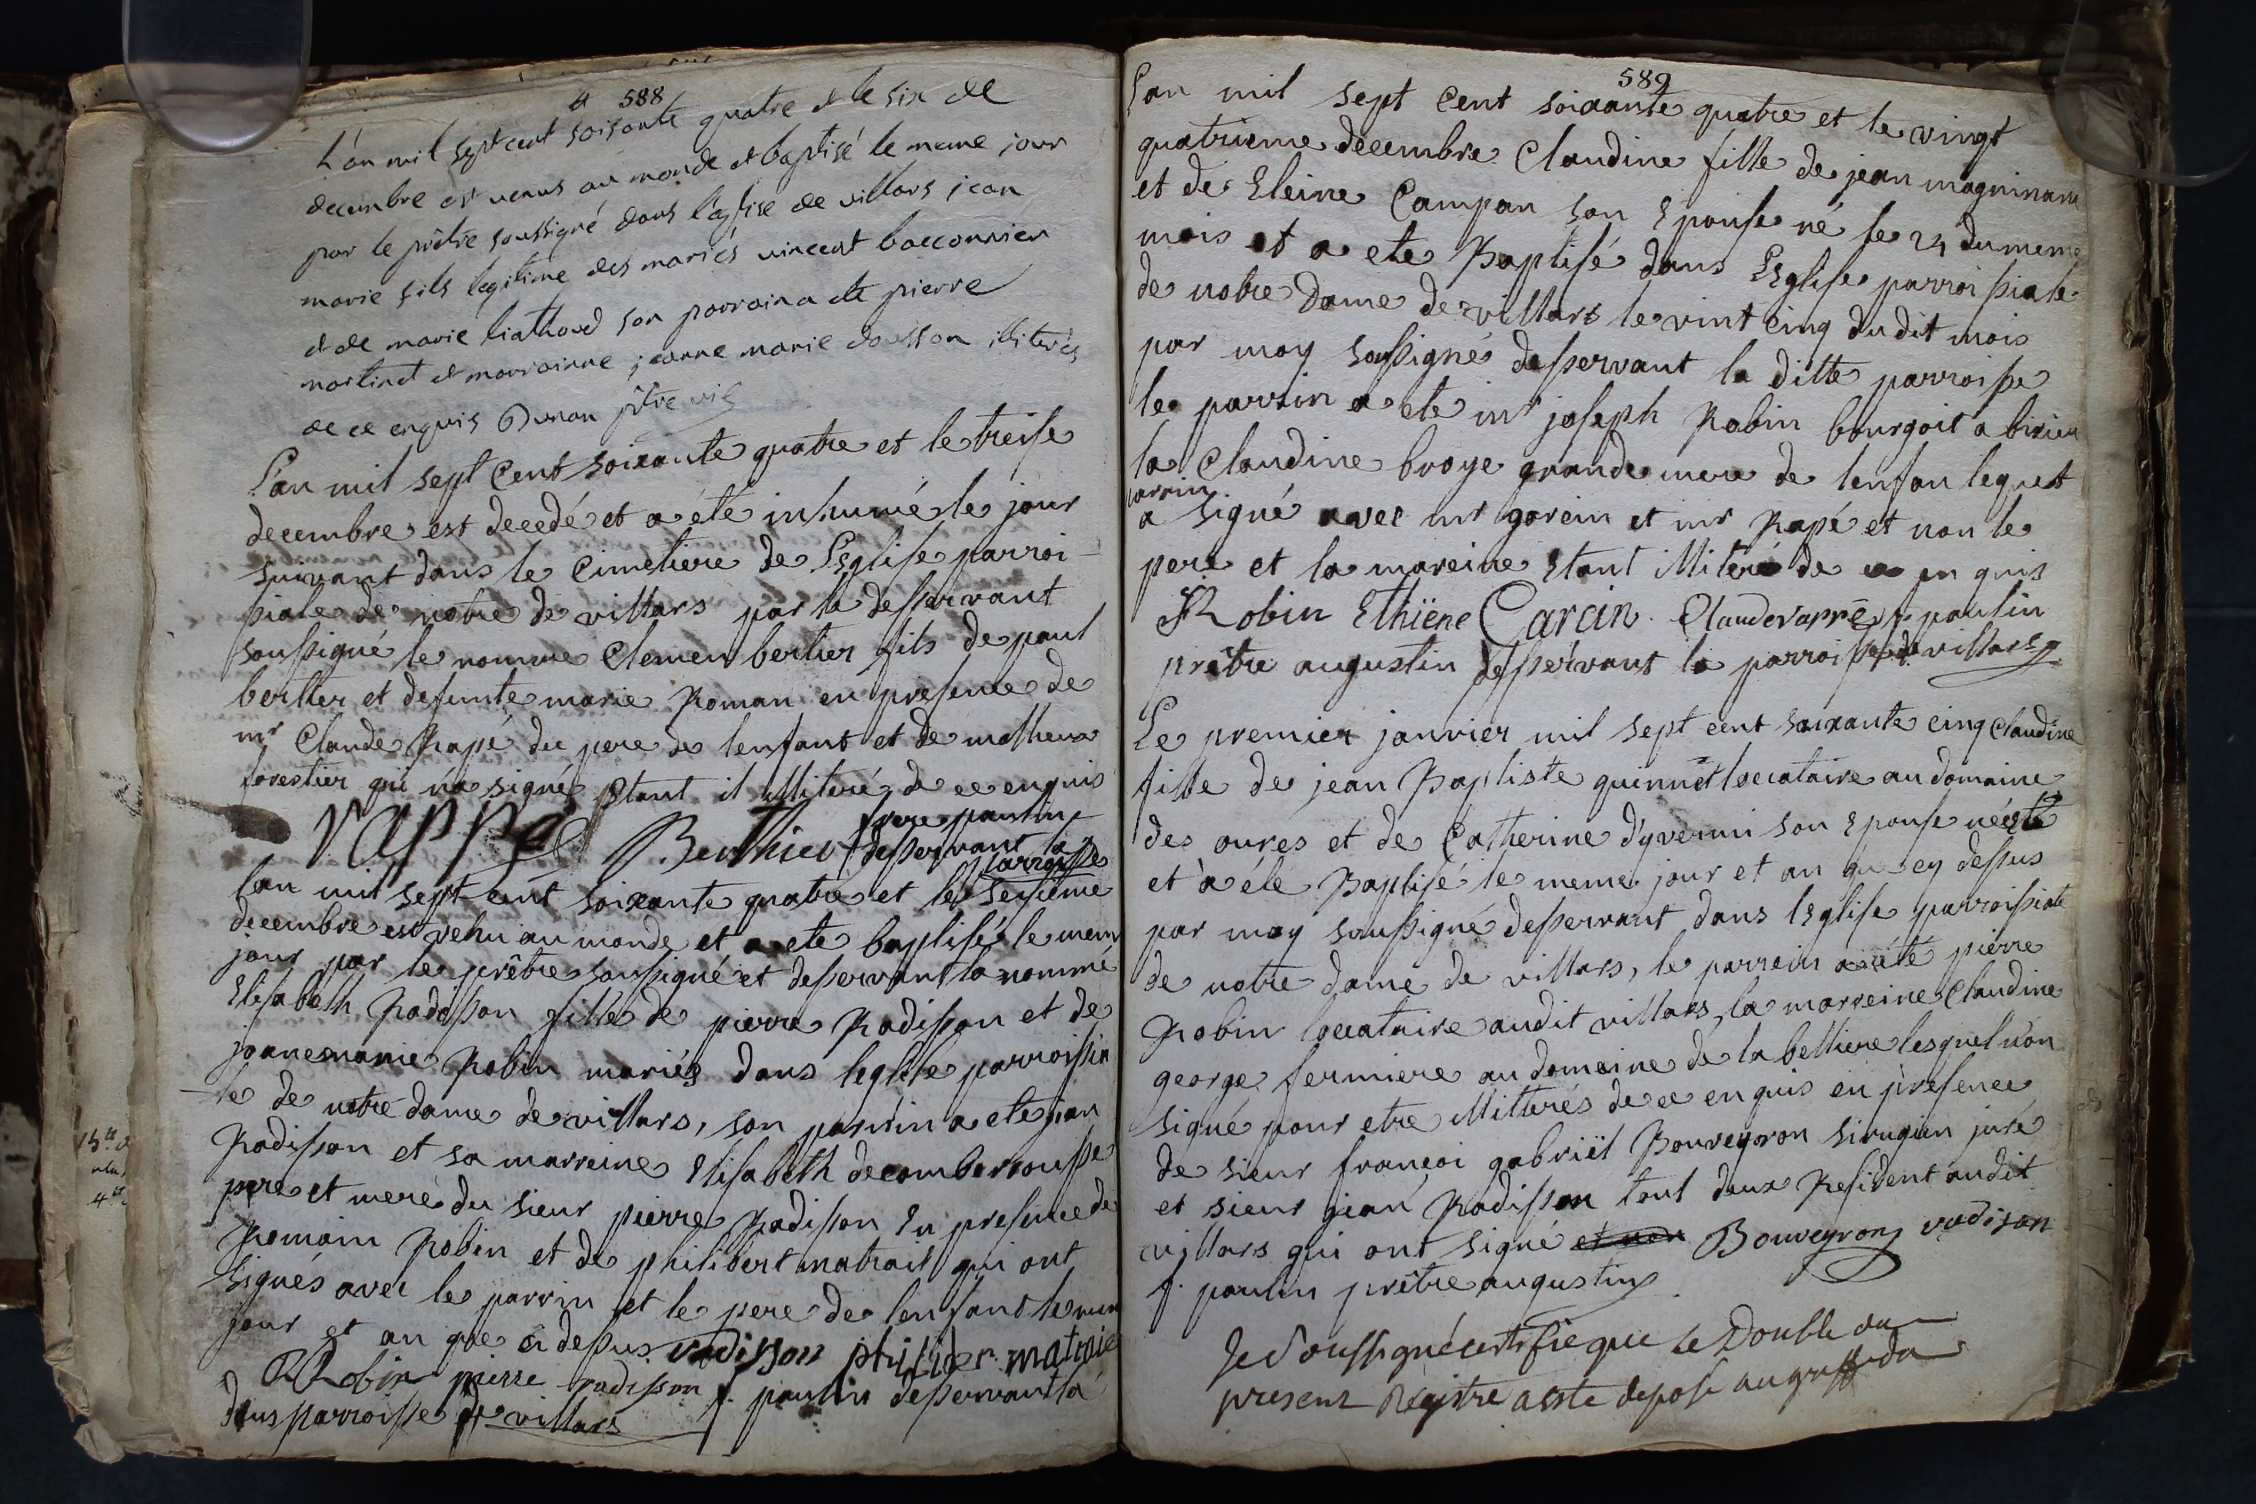 588
L'an mil sept cent soisante quatre et le six de
decembre est venus au monde et baptisé le meme jour
par le prêtre soussigné dans l'eglise de villars jean
marie fils legitime des mariés vincent bacconnier
et de marie liathaud son parrain a ete pierre
martinet et marrainne jeanne marie illiterés
de ce enquis Dunan ptre vic
L'an mil sept Cent soixante quatre et le treise
decembre est decedé et a été inhumé le jour
suivant dans le Cimetiere de L'Eglise parroi-
ssiale de notre de villars par le desservant
soussigné le nomme Clemen bertier fils de paul
bertier et defunte marie Roman en presence de
mr Claude Rapé du pere de lenfant et de matheux
forestier qui n'a signé Etant il illiteré de ce enquis
rappé Berthier frere paulin
desservant la
parroisse
lan mil sept cent soixante quatre et le sesieme
decembre est vehu au monde et a ete baptisé le mem
jour par le prêtre soussigné et desservant la nommé
Elisabeth Radisson fille de pierre Radisson et de
joanemarie Robin mariés dans leglise parroissia
le de notre dame de villars, son parrin a ete jean
Radisson et sa marreine Elisabeth decomberousse
pere et mere du sieur pierre Radisson En presence de
Romain Robin et de philibert matrait qui ont
signés avec le parrin et le pere de lenfant le mem
jour et an que ci dessus radisson philiber matraie
R Robin pierre radisson f. paulin desservant la
dens parroisse de villars
589
L'an mil sept Cent soixante quatre et le vingt
quatrieme decembre Claudine fille de jean magninan
et de Eleine Campan son Epouse né le 24 du meme
mois et a ete Baptisé dans L'Eglise parroissiale
de notre Dame de villars le vint cinq du dit mois
par moy soussigné desservant la ditte parroisse
le parrin a ete mr joseph Robin bourgoit a birieu
la Claudine broye grande mere de lenfan lequel
parrin
a signé avec mr garein et mr Rapé et non le
pere et la mareine Etant illiteré de ce en quis
JR Robin Ethiene Carcin Claude rappé f. paulin
prêtre augustin desservant la parroisse de villars
Le premier janvier mil sept cent soixante cinq Claudine
fille de jean Baptiste quinnet locataire au domaine
des oures et de Catherine d'yvernin son Epouse née
et a été Baptisé le meme jour et an qu cy dessus
par moy soussigné desservant dans lEglise parroissiale
de notre dame de villars, le parrein a été pierre
Robin locataire audit villars, la marreine Claudine
george fermiere au domaine de la belliere lesquel n'on
signé pour etre illitterés de ce en quis en présence
de sieur françoi gabriël Bouveyron sirugien juré
et sieur jean Radisson tout deux Resident audit
villars qui ont signé et non Bouveyron radison
f. paulin prêtre augustin
Je Soussigné certifie que le Double du
present Régistre a este deposé au greffe du